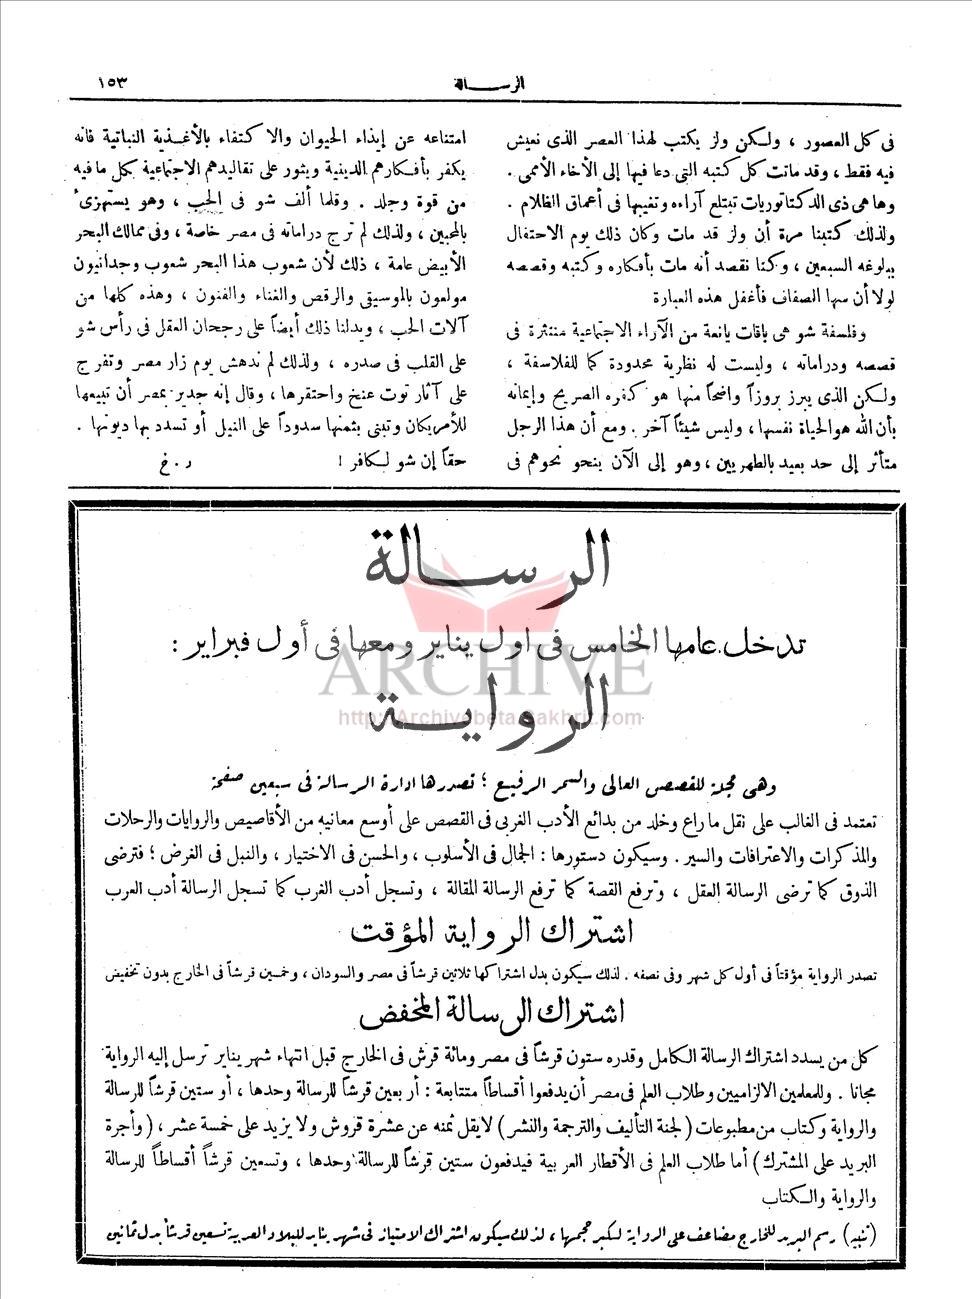 الرسالة
١٥٣
فى كل العصور ، ولكن ولز يكتب لهذا العصر الذى نعيش
فيه فقط ، وقد ماتت كل كتبه التى دعا فيها إلى الأخاء الأممى .
وها هى ذى الدكتاتوريات تبتلع آراءه وتغيبها فى أعماق الظلام .
ولذلك كتبنا مرة أن ولز قد مات وكان ذلك يوم الاحتفال
ببلوغه السبعين ، وكنا نقصد أنه مات بأفكاره وكتبه وقصصه
لولا أن سها الصفاف فأغفل هذه العبارة
وفلسفة شو هى باقات يانعة من الآراء الاجتماعية منتثرة فى
قصصه ودراماته ، وليست له نظرية محدودة كما للفلاسفة ،
ولكن الذى يبرز بروزاً واضحاً منها هو كفره الصريح وإيمانه
بأن الله هو الحياة نفسها ، وليس شيئاً آخر . ومع أن هذا الرجل
متأثر إلى حد بعيد بالطهريين ، وهو إلى الآن ينحو نحوهم فى
امتناعه عن إيذاء الحيوان والاكتفاء بالأغذية النباتية فانه
يكفر بأفكارهم الدينية ويثور على تقاليدهم الاجتماعية بكل ما فيه
من قوة وجلد . وقلما ألف شو فى الحب ، وهو يستهزئ
بالمحبين ، ولذلك لم ترج دراماته فى مصر خاصة ، وفى ممالك البحر
الأبيض عامة ، ذلك لأن شعوب هذا البحر شعوب وجدانيون
مولعون بالموسيقى والرقص والغناء والفنون ، وهذه كلها من
آلات الحب ، ويدلنا ذلك أيضاً على رجحان العقل فى رأس شو
على القلب فى صدره ، ولذلك لم ندهش يوم زار مصر وتفرج
على آثار توت عنخ واحتقرها ، وقال إنه جدير بمصر أن تبيعها
للأمريكان وتبنى بثمنها سدوداً على النيل أو تسدد بها ديونها .
حقاً إن شو لكافر ! ر . خ
الرسالة
تدخل عامها الخامس فى اول يناير ومعها فى أول فبراير :
ARCHIVE
الرواية
http://Archivebeta.Sakhrit.com
وهى مجلة للقصص العالى والسمر الرفيع ؛ تصدرها ادارة الرسالة فى سبعين صفحة
تعتمد فى الغالب على نقل ما راع وخلد من بدائع الأدب الغربى فى القصص على أوسع معانيه من الأقاصيص والروايات والرحلات
والمذكرات والاعترافات والسير . وسيكون دستورها : الجمال فى الأسلوب ، والحسن فى الاختيار ، والنبل فى الغرض ؛ فترضى
الذوق كما ترضى الرسالة العقل ، وترفع القصة كما ترفع الرسالة المقالة ، وتسجل أدب الغرب كما تسجل الرسالة أدب العرب
اشتراك الرواية المؤقت
تصدر الرواية مؤقتاً فى أول كل شهر وفى نصفه . لذلك سيكون بدل اشتراكها ثلاثين قرشاً فى مصر والسودان ، وخمسين قرشاً فى الخارج بدون تخفيض
اشتراك الرسالة المخفض
كل من يسدد اشتراك الرسالة الكامل وقدره ستون قرشاً فى مصر ومائة قرش فى الخارج قبل انتهاء شهر يناير ترسل إليه الرواية
مجانا . وللمعلمين الالزاميين وطلاب العلم فى مصر أن يدفعوا أقساطاً متتابعة : أربعين قرشاً للرسالة وحدها ، أو ستين قرشاً للرسالة
والرواية وكتاب من مطبوعات ( لجنة التأليف والترجمة والنشر ) لا يقل ثمنه عن عشرة قروش ولا يزيد على خمسة عشر ، ( وأجرة
البريد على المشترك ) أما طلاب العلم فى الأقطار العربية فيدفعون ستين قرشاً للرسالة وحدها ، وتسعين قرشاً أقساطاً للرسالة
والرواية والكتاب
( تنبيه ) رسم البريد للخارج مضاعف على الرواية لكبر حجمها ، لذلك سيكون اشتراك الامتياز فى شهر يناير للبلاد العربية تسعين قرشاً بدل ثمانين